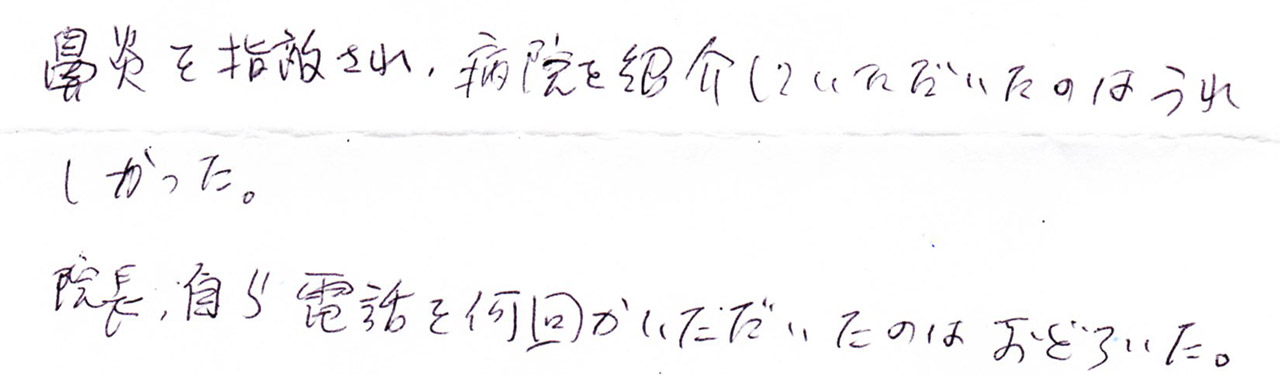 鼻炎を指敵され、病院を紹介していただいたのはうれ
しかった。
院長、自ら電話を何回かいただいたのはおどろいた。